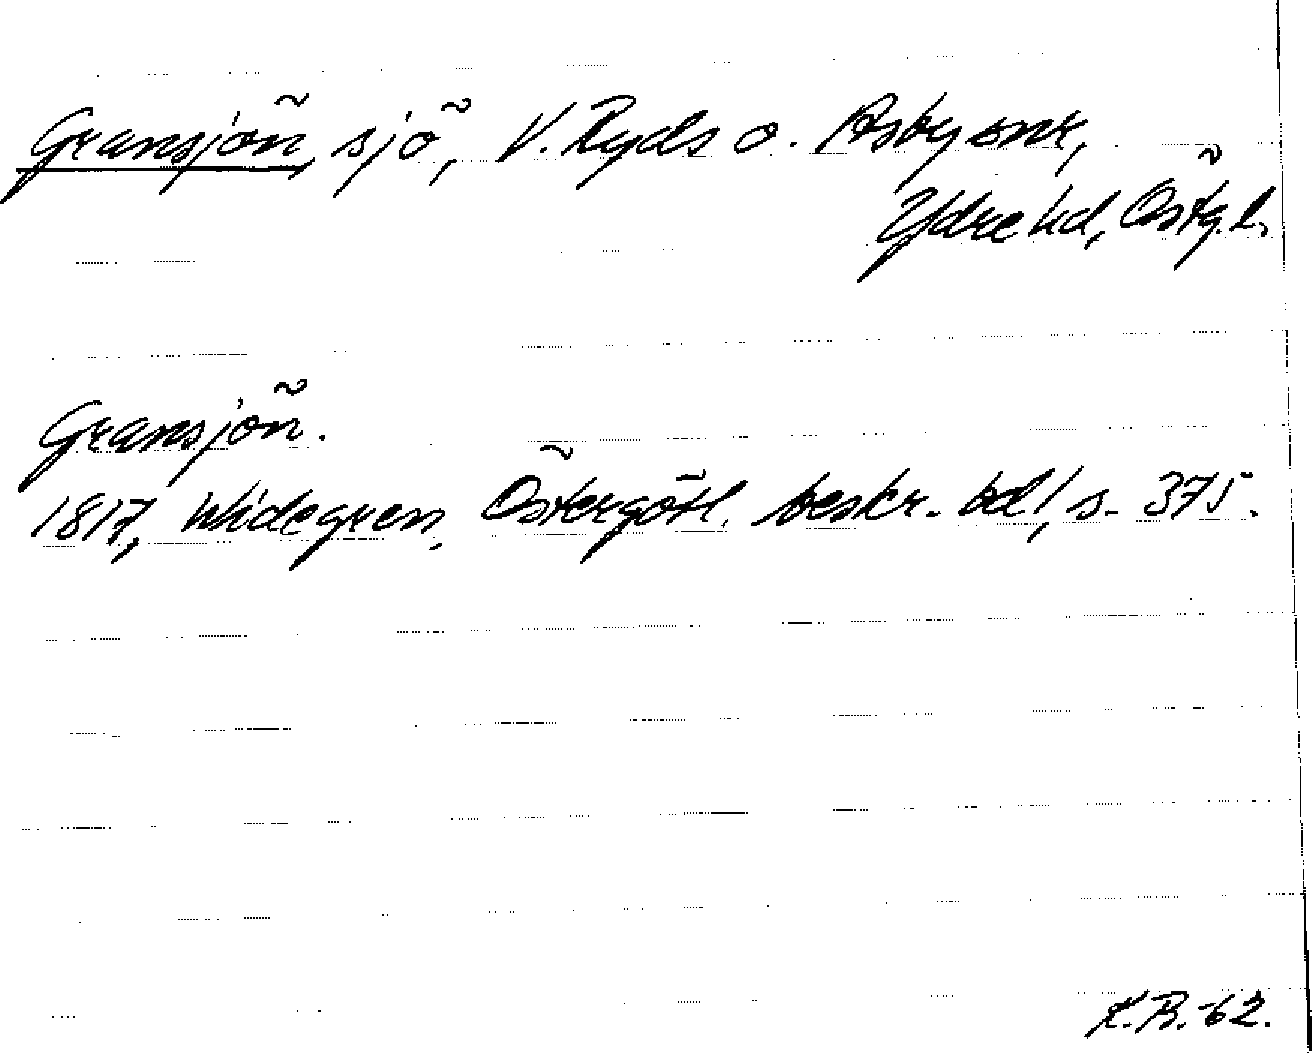 Gransjön, sjö, V. Ryds o. Asby snr,
Ydre hd, Östg.l.
Gransjön.
1817, Widegren, Östergötl. beskr. bd 1, s. 375.
K.R. 62.